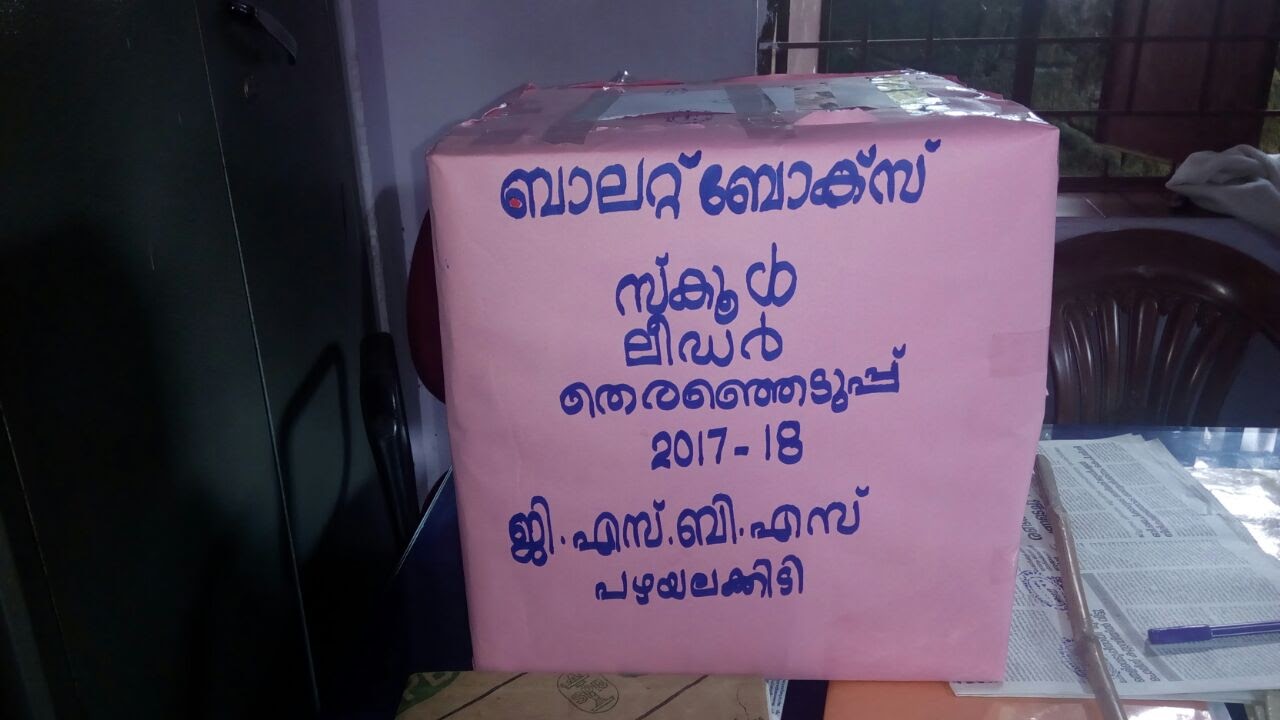 ബാലറ്റ് ബോക്സ്
സ്കൂൾ
ലീഡർ
തെരഞ്ഞെടുപ്പ്
2017-18
ജി.എസ്.ബി.എസ്
പഴയലക്കിടി